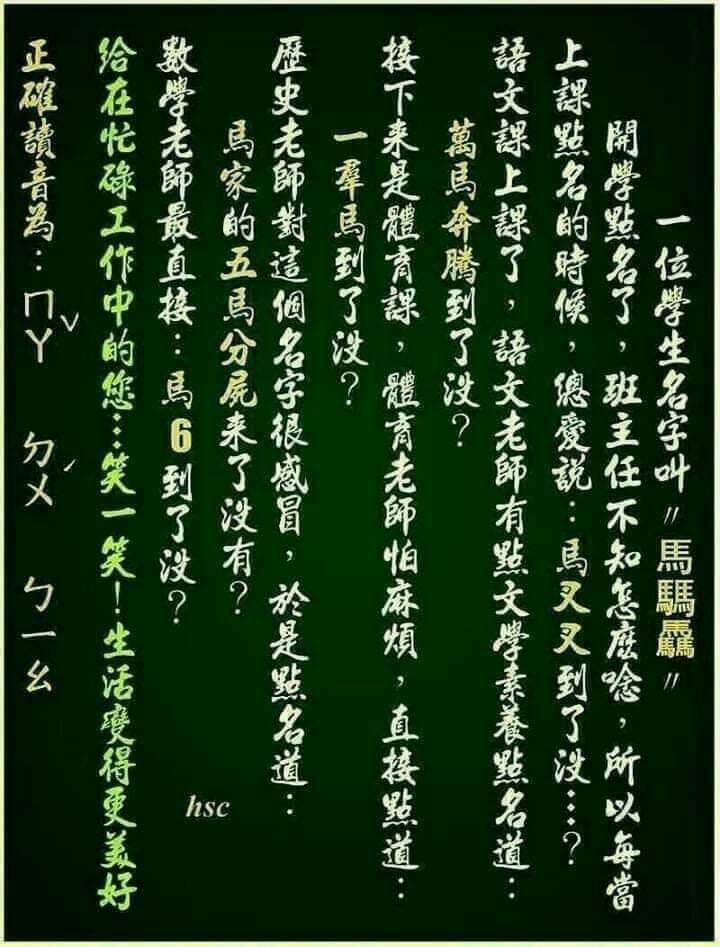 一位學生名字叫〃馬騳驫〃
開學點名了，班主任不知怎麼唸，所以每當
上課點名的時候，總愛說：馬叉叉到了沒…？
語文課上課了，語文老師有點文學素養點名道：
萬馬奔騰到了沒？
接下来是體育課，體育老師怕麻煩，直接點道：
一羣馬到了没？
歷史老師對這個名字很感冒，於是點名道：
馬家的五馬分屍来了没有？
數學老師最直接：馬6到了没？
hsc
給在忙碌工作中的您…笑一笑！生活變得更美好
正確讀音為：ㄇㄚˇ ㄉㄨˊ ㄅㄧㄠ